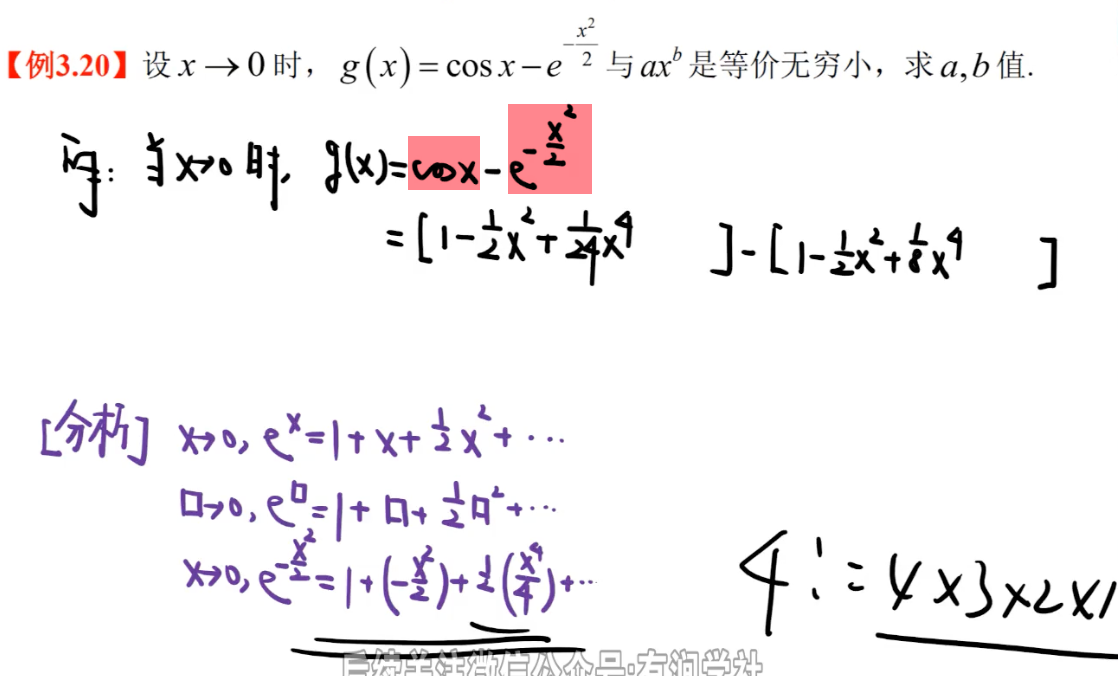 【例3.20】设 x → 0 时，g(x) = cos x − e^{−x²/2} 与 ax^b 是等价无穷小，求 a,b 值.
当 x→0 时, g(x) = cosx − e^{−x²/2}
= [1 − 1/2 x² + 1/24 x⁴ ] − [1 − 1/2 x² + 1/8 x⁴ ]
[分析] x→0, e^x = 1 + x + 1/2 x² + ···
□→0, e^□ = 1 + □ + 1/2 □² + ···
x→0, e^{−x²/2} = 1 + (−x²/2) + 1/2 (x⁴/4) + ···
4! = 4×3×2×1
后续关注微信公众号:有润学社